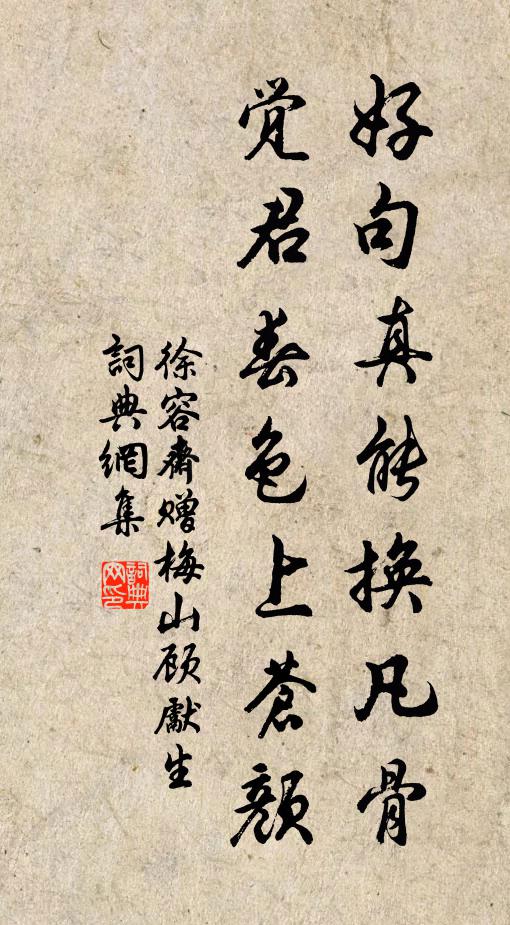 好句真能换凡骨
觉君春色上苍颜
徐容斋赠梅山顾献生
词典网集
詞典网印